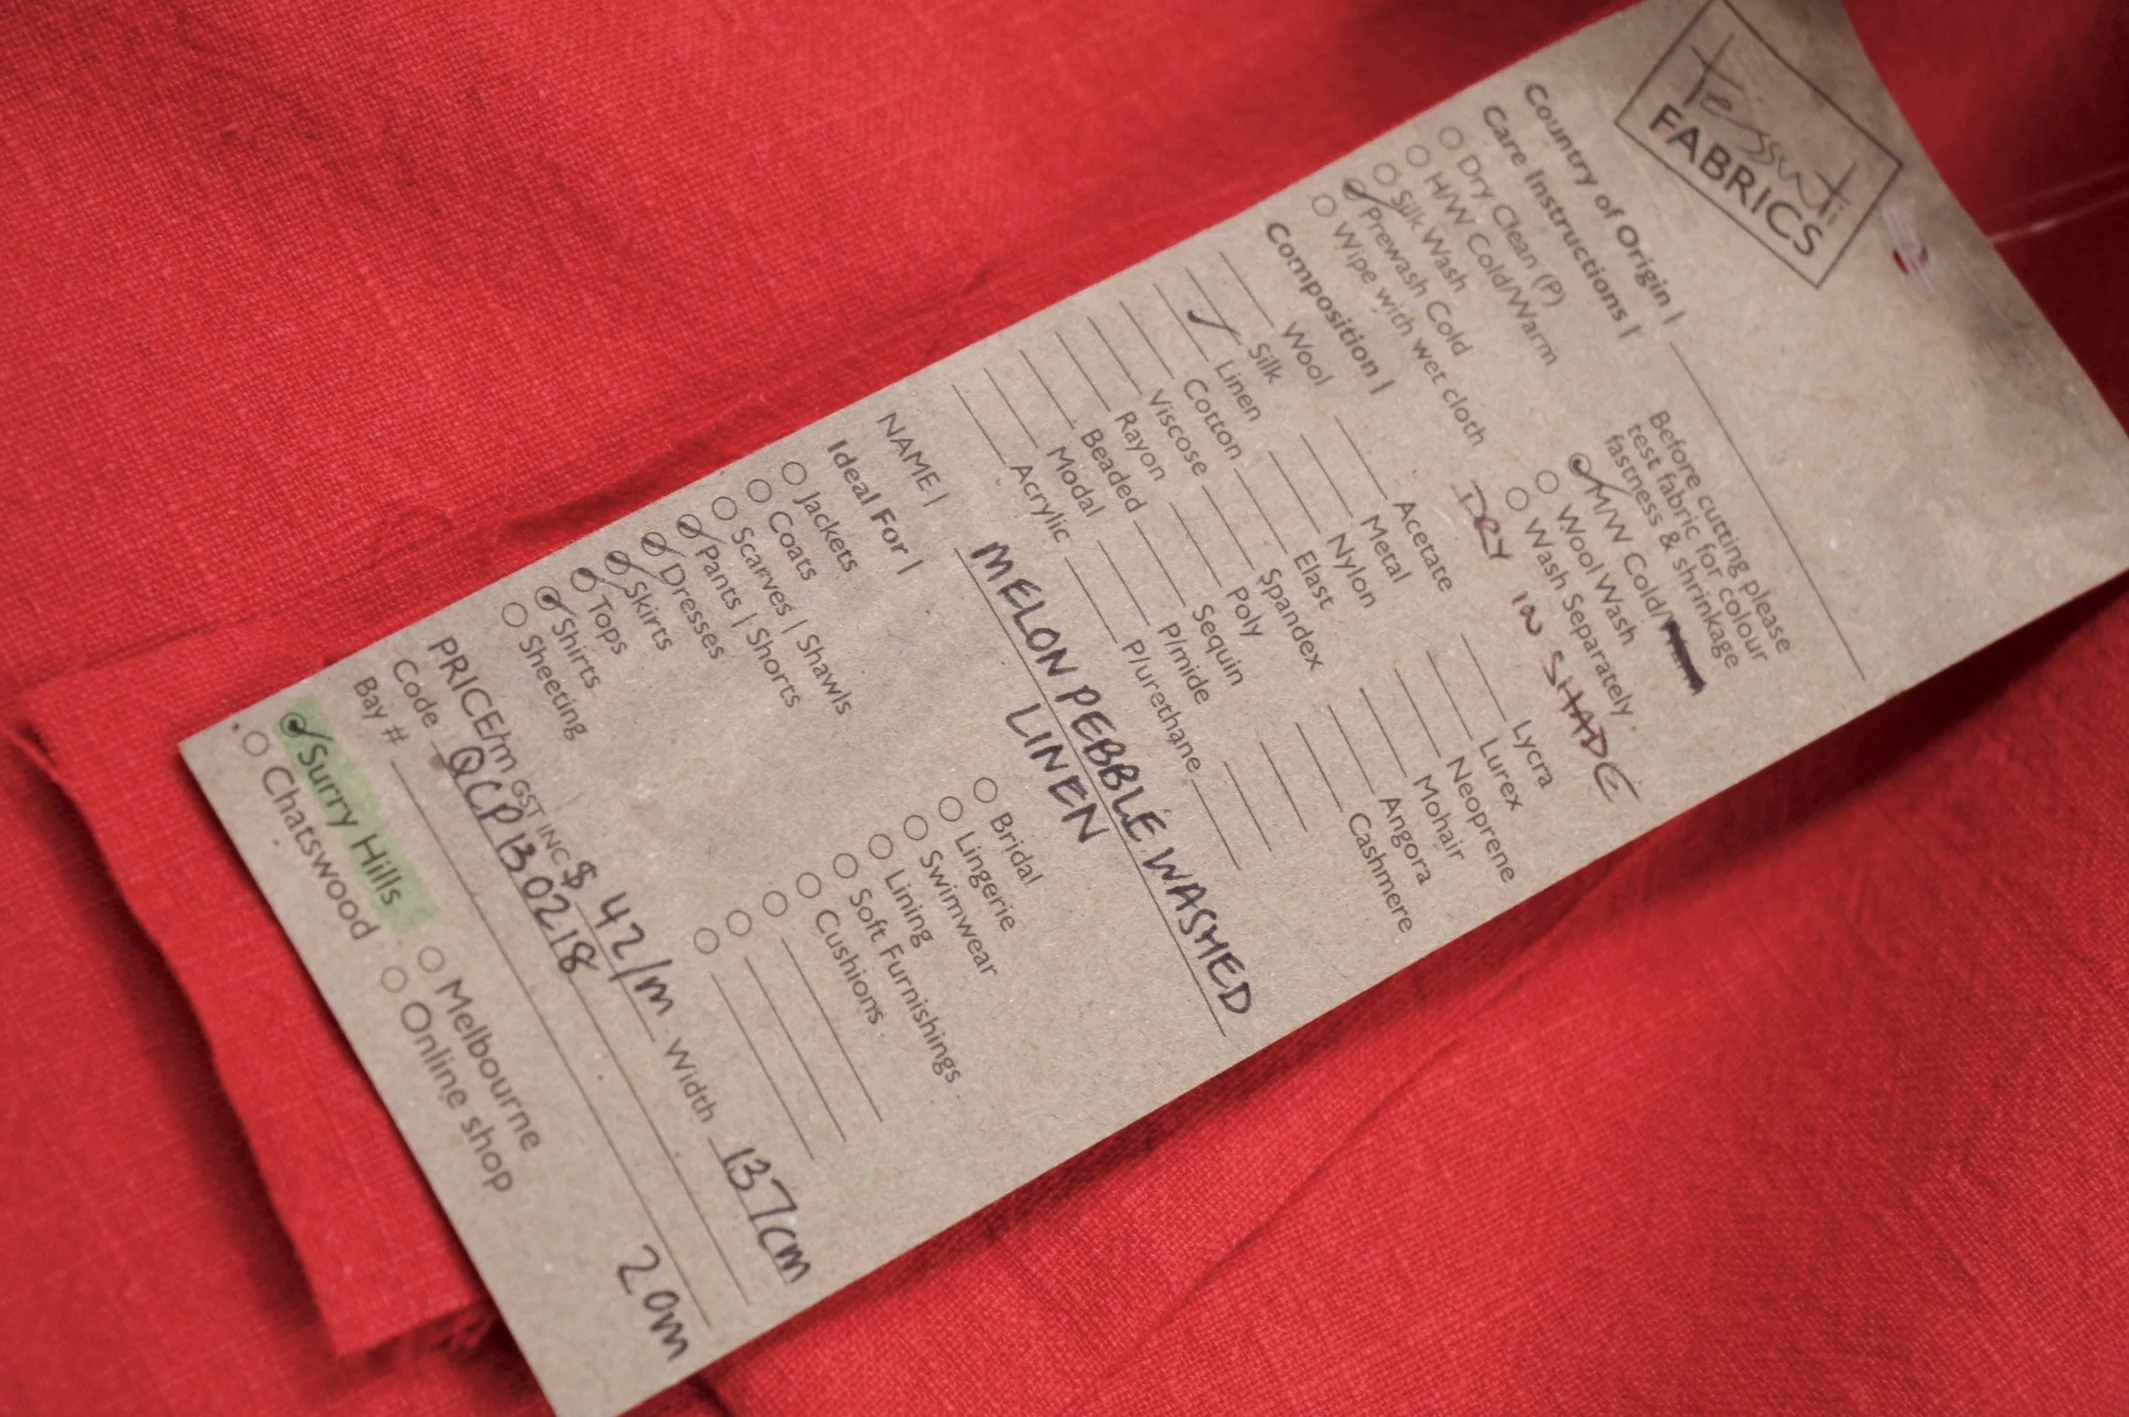 tessuti
FABRICS
Country of Origin |
Care Instructions |
Dry Clean (P)
H/W Cold/Warm
Silk Wash
Prewash Cold
Wipe with wet cloth
Before cutting please
test fabric for colour
fastness & shrinkage
M/W Cold/
Wool Wash
Wash Separately
DRY IN SHADE
Composition |
Wool
Silk
Linen
Cotton
Viscose
Rayon
Beaded
Modal
Acrylic
Acetate
Metal
Nylon
Elast
Spandex
Poly
Sequin
P/mide
P/urethane
Lycra
Lurex
Neoprene
Mohair
Angora
Cashmere
NAME | MELON PEBBLE WASHED
LINEN
Ideal For |
Jackets
Coats
Scarves | Shawls
Pants | Shorts
Dresses
Skirts
Tops
Shirts
Sheeting
Bridal
Lingerie
Swimwear
Lining
Soft Furnishings
Cushions
PRICE/m GST INC $ 42/m Width 137cm
Code QCP130218
Bay # 20m
Surry Hills
Chatswood
Melbourne
Online shop